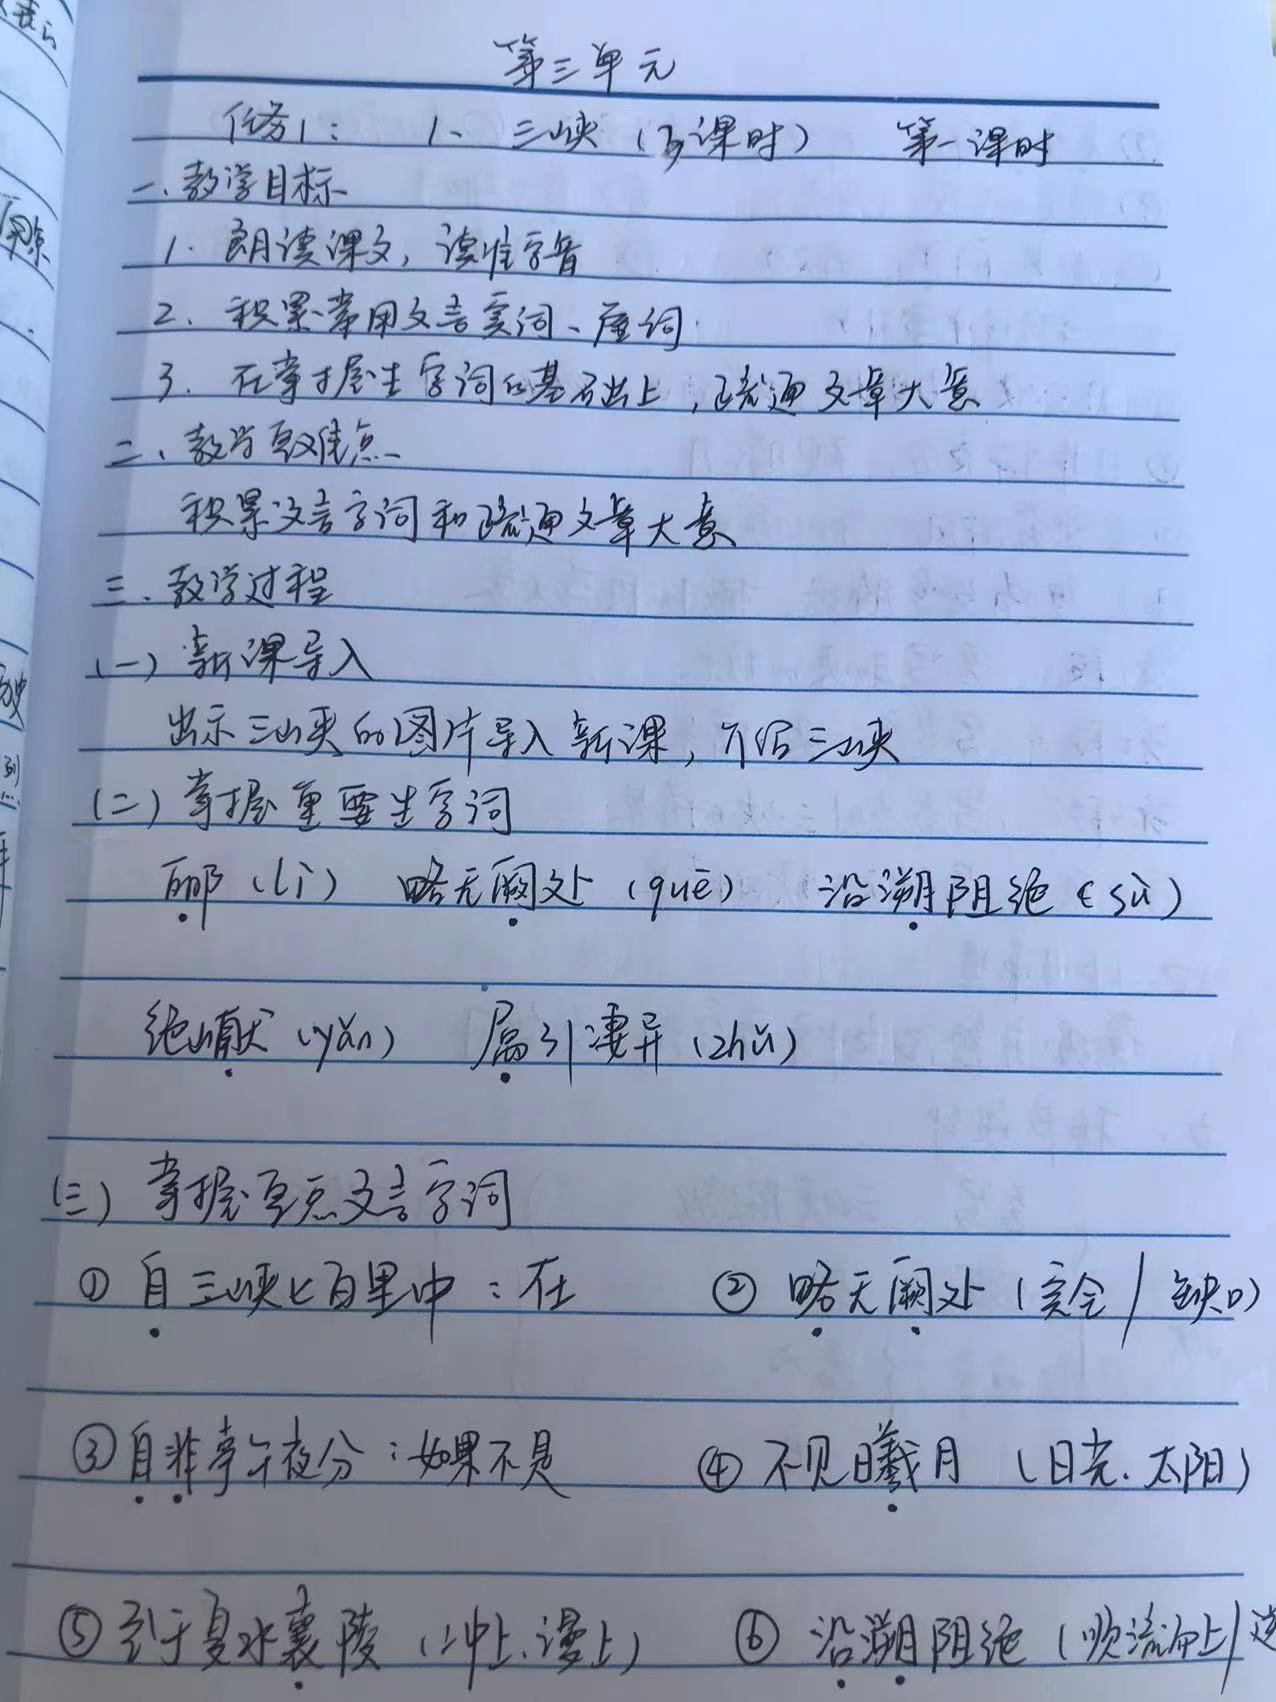 第三单元
任务1： 1、三峡（3课时） 第一课时
一、教学目标
1. 朗读课文，读准字音
2. 积累常用文言实词、虚词
3. 在掌握生字词的基础上，疏通文章大意
二、教学重难点
积累文言字词和疏通文章大意
三、教学过程
(一) 新课导入
出示三峡的图片导入新课，介绍三峡
(二) 掌握重要生字词
郦（lì） 略无阙处（quē） 沿溯阻绝（sù）
绝巘（yǎn） 属引凄异（zhǔ）
(三) 掌握重点文言字词
① 自三峡七百里中：在 ② 略无阙处（完全/缺口）
③ 自非亭午夜分：如果不是 ④ 不见曦月（日光、太阳）
⑤ 至于夏水襄陵（冲上、漫上） ⑥ 沿溯阻绝（顺流而上/